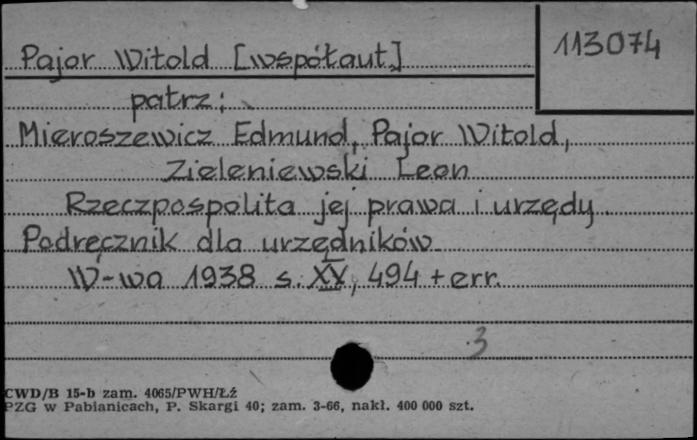 Pajor Witold [współaut]
113074
patrz:
Mieroszewicz Edmund, Pajor Witold,
Zieleniewski Leon
Rzeczpospolita jej prawa i urzędy.
Podręcznik dla urzędników
W-wa 1938 s. XV, 494 + err.
3
CWD/B 15-b zam. 4065/PWH/Łż
PZG w Pabianicach, P. Skargi 40; zam. 3-66, nakł. 400 000 szt.